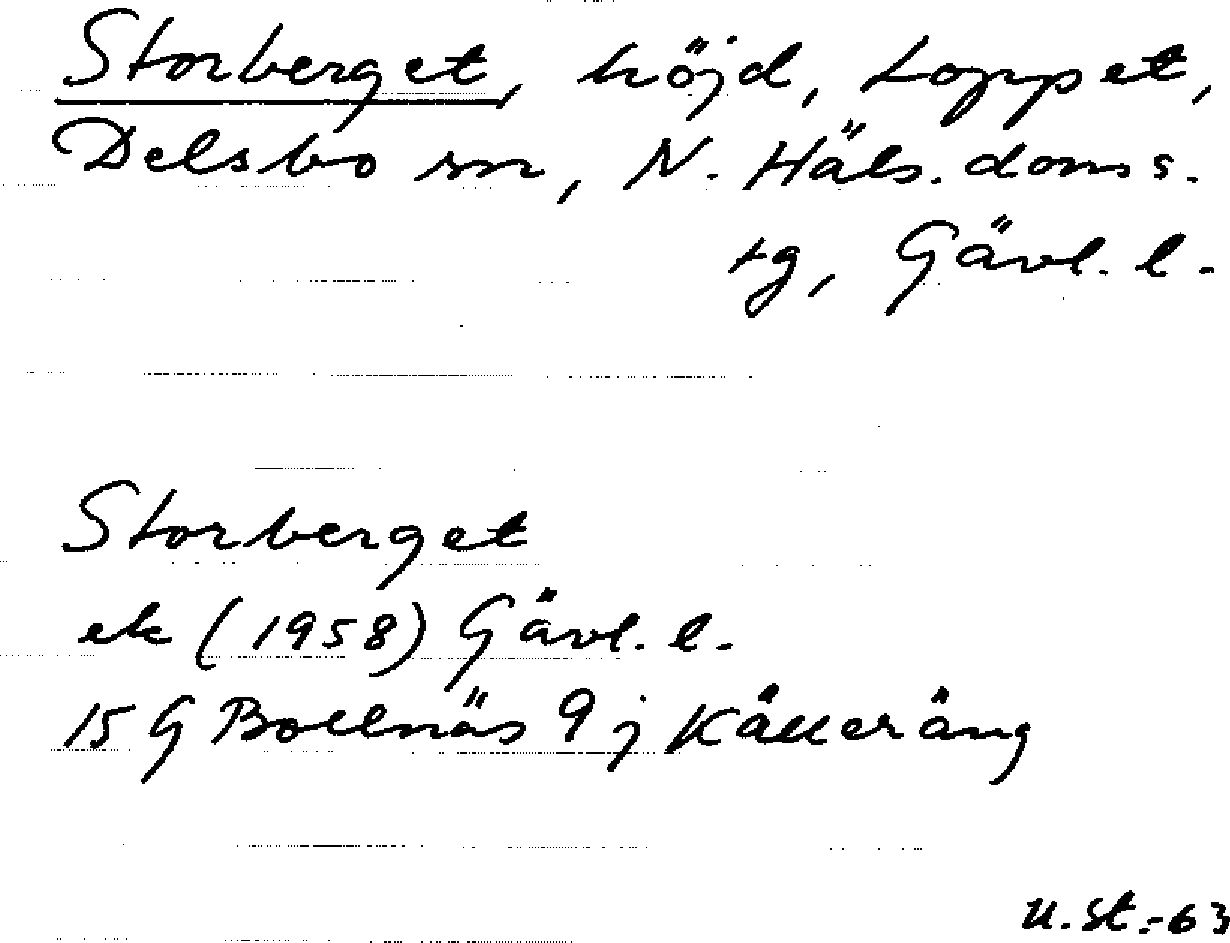 Storberget, höjd, toppet,
Delsbo sn, N. Häls. doms.
tg, Gävl. l.
Storberget
ek (1958) Gävl. l.
15 G Bollnäs 9 j Källeräng
U.St.-63